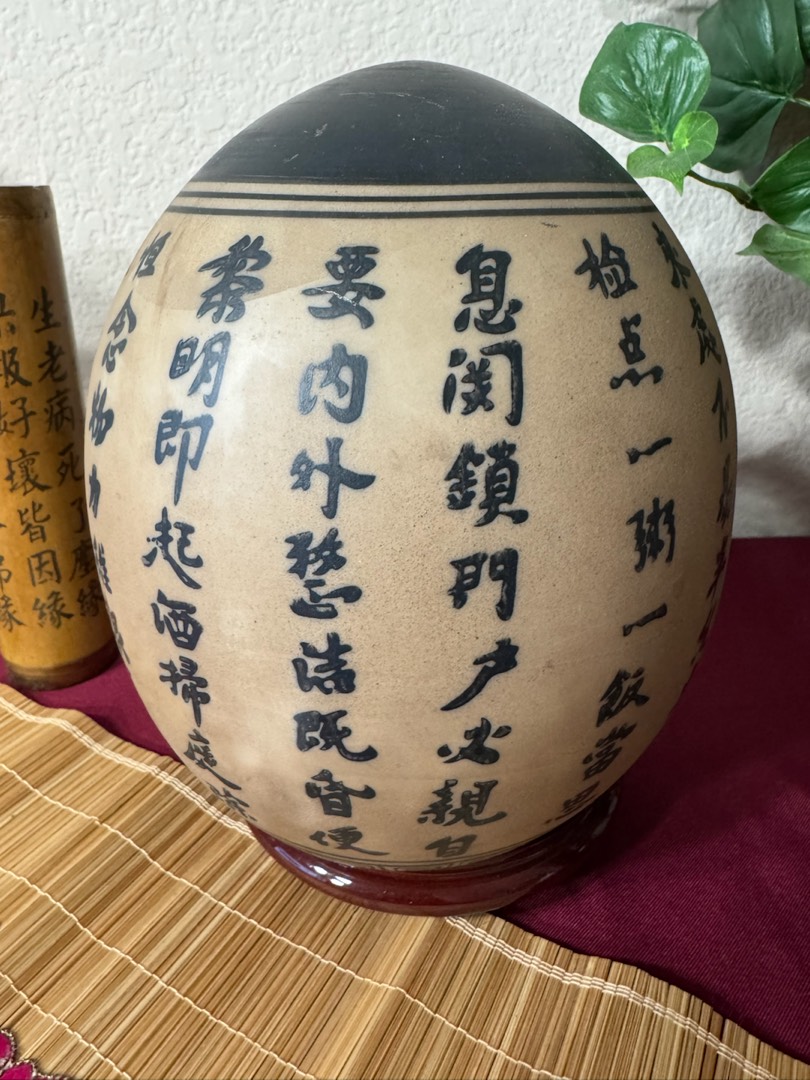 生老病死了塵緣
報好壞皆因緣
恒念物力維艱
黎明即起洒掃庭除
要内外整洁既昏便
息関鎖門户必親自
检点一粥一飯當思
來處不易